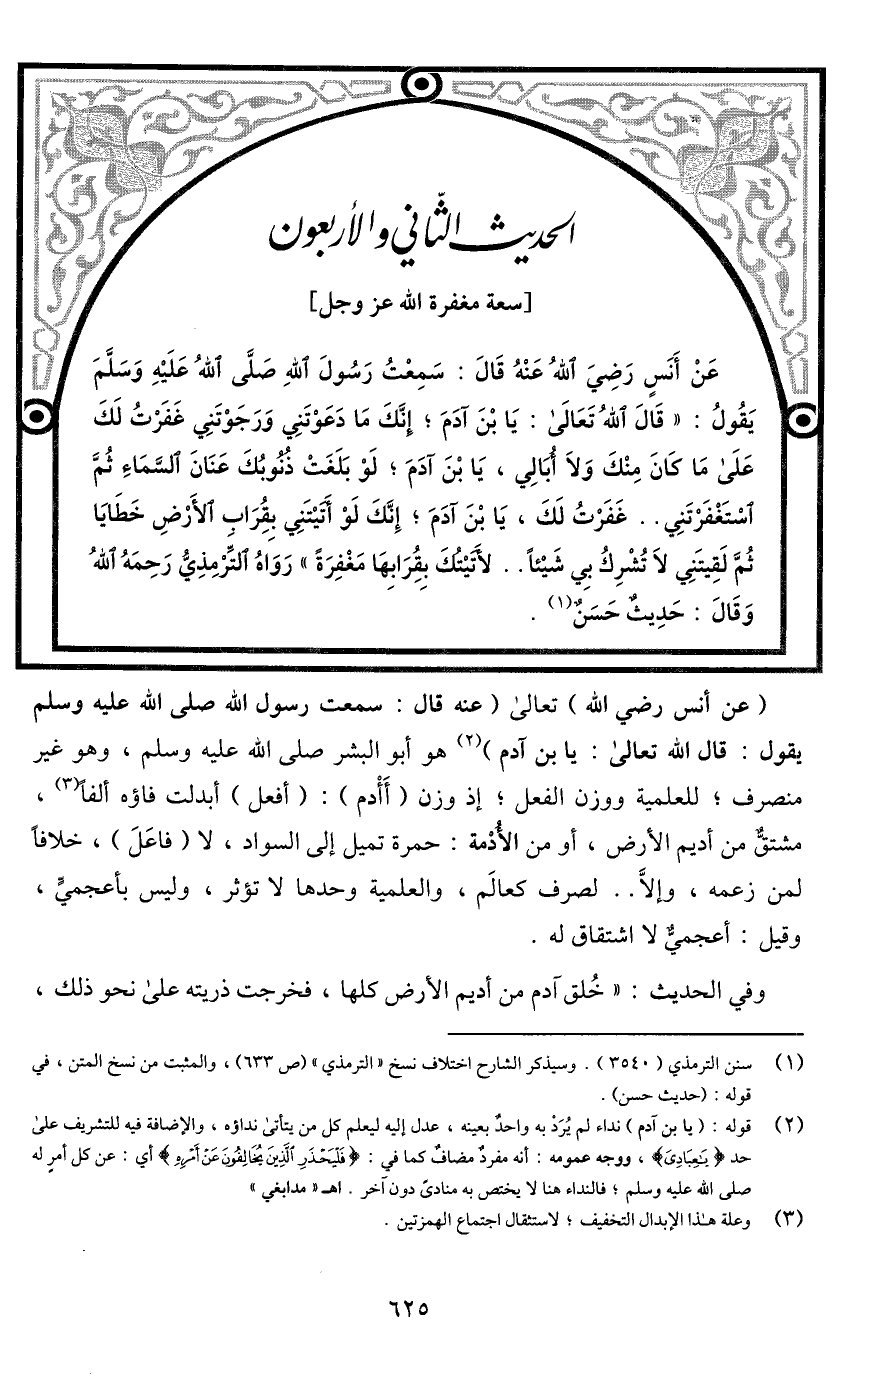 الحديث الثّاني والأربعون
[سعة مغفرة الله عز وجل]
عَنْ أَنَسٍ رَضِيَ ٱللهُ عَنْهُ قَالَ : سَمِعْتُ رَسُولَ ٱللهِ صَلَّى ٱللهُ عَلَيْهِ وَسَلَّمَ
يَقُولُ : « قَالَ ٱللهُ تَعَالَىٰ : يَا بْنَ آدَمَ ؛ إِنَّكَ مَا دَعَوْتَنِي وَرَجَوْتَنِي غَفَرْتُ لَكَ
عَلَىٰ مَا كَانَ مِنْكَ وَلاَ أُبَالِي ، يَا بْنَ آدَمَ ؛ لَوْ بَلَغَتْ ذُنُوبُكَ عَنَانَ ٱلسَّمَاءِ ثُمَّ
ٱسْتَغْفَرْتَنِي . . غَفَرْتُ لَكَ ، يَا بْنَ آدَمَ ؛ إِنَّكَ لَوْ أَتَيْتَنِي بِقُرَابِ ٱلأَرْضِ خَطَايَا
ثُمَّ لَقِيتَنِي لاَ تُشْرِكُ بِي شَيْئاً . . لأَتَيْتُكَ بِقُرَابِهَا مَغْفِرَةً » رَوَاهُ ٱلتِّرْمِذِيُّ رَحِمَهُ ٱللهُ
وَقَالَ : حَدِيثٌ حَسَنٌ(١) .
( عن أنس رضي الله ) تعالىٰ ( عنه قال : سمعت رسول الله صلى الله عليه وسلم
يقول : قال الله تعالىٰ : يا بن آدم )(٢) هو أبو البشر صلى الله عليه وسلم ، وهو غير
منصرف ؛ للعلمية ووزن الفعل ؛ إذ وزن ( أَأْدم ) : ( أفعل ) أبدلت فاؤه ألفاً(٣) ،
مشتقٌّ من أديم الأرض ، أو من الأُدْمة : حمرة تميل إلى السواد ، لا ( فاعَلَ ) ، خلافاً
لمن زعمه ، وإلاَّ . . لصرف كعالَم ، والعلمية وحدها لا تؤثر ، وليس بأعجميٍّ ،
وقيل : أعجميٌّ لا اشتقاق له .
وفي الحديث : « خُلق آدم من أديم الأرض كلها ، فخرجت ذريته علىٰ نحو ذلك ،
(١) سنن الترمذي ( ٣٥٤٠ ) . وسيذكر الشارح اختلاف نسخ « الترمذي » (ص ٦٣٣) ، والمثبت من نسخ المتن ، في
قوله : (حديث حسن) .
(٢) قوله : ( يا بن آدم ) نداء لم يُرَدْ به واحدٌ بعينه ، عدل إليه ليعلم كل من يتأتىٰ نداؤه ، والإضافة فيه للتشريف علىٰ
حد ﴿ يَـٰعِبَادِىَ﴾ ، ووجه عمومه : أنه مفردٌ مضافٌ كما في : ﴿ فَلْيَحْذَرِ ٱلَّذِينَ يُخَالِفُونَ عَنْ أَمْرِهِ ﴾ أي : عن كل أمرٍ له
صلى الله عليه وسلم ؛ فالنداء هنا لا يختص به منادىً دون آخر . اهـ « مدابغي »
(٣) وعلة هـٰذا الإبدال التخفيف ؛ لاستثقال اجتماع الهمزتين .
٦٢٥